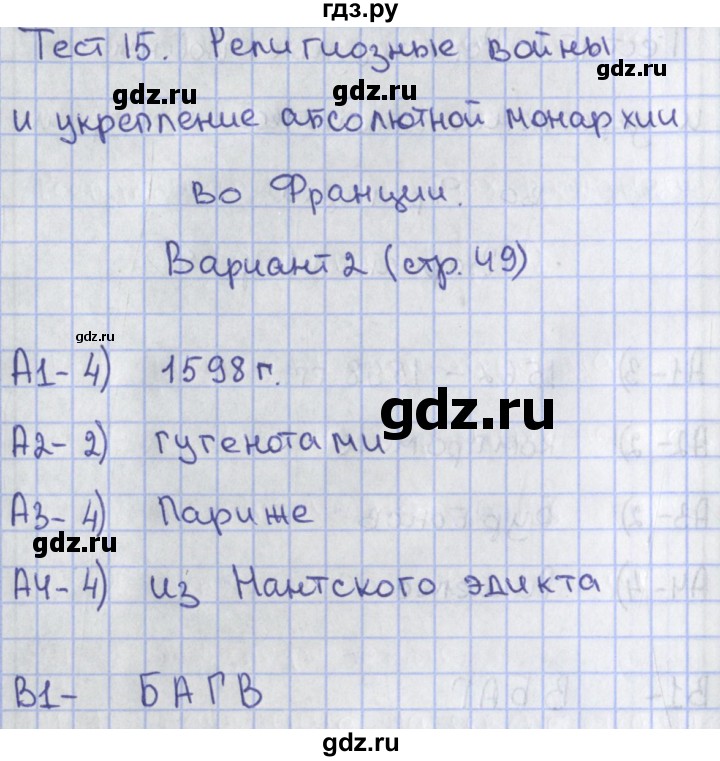 гдз.ру
Тест 15. Религиозные войны
gdz.ru gdz.ru
и укрепление абсолютной монархии
во Франции.
Вариант 2 (стр. 49)
gdz.ru
А1- 4) 1598 г.
gdz.ru
А2- 2) гугенотами
А3- 4) Париже
gdz.ru
А4- 4) из Нантского эдикта
В1- БАГВ
gdz.ru